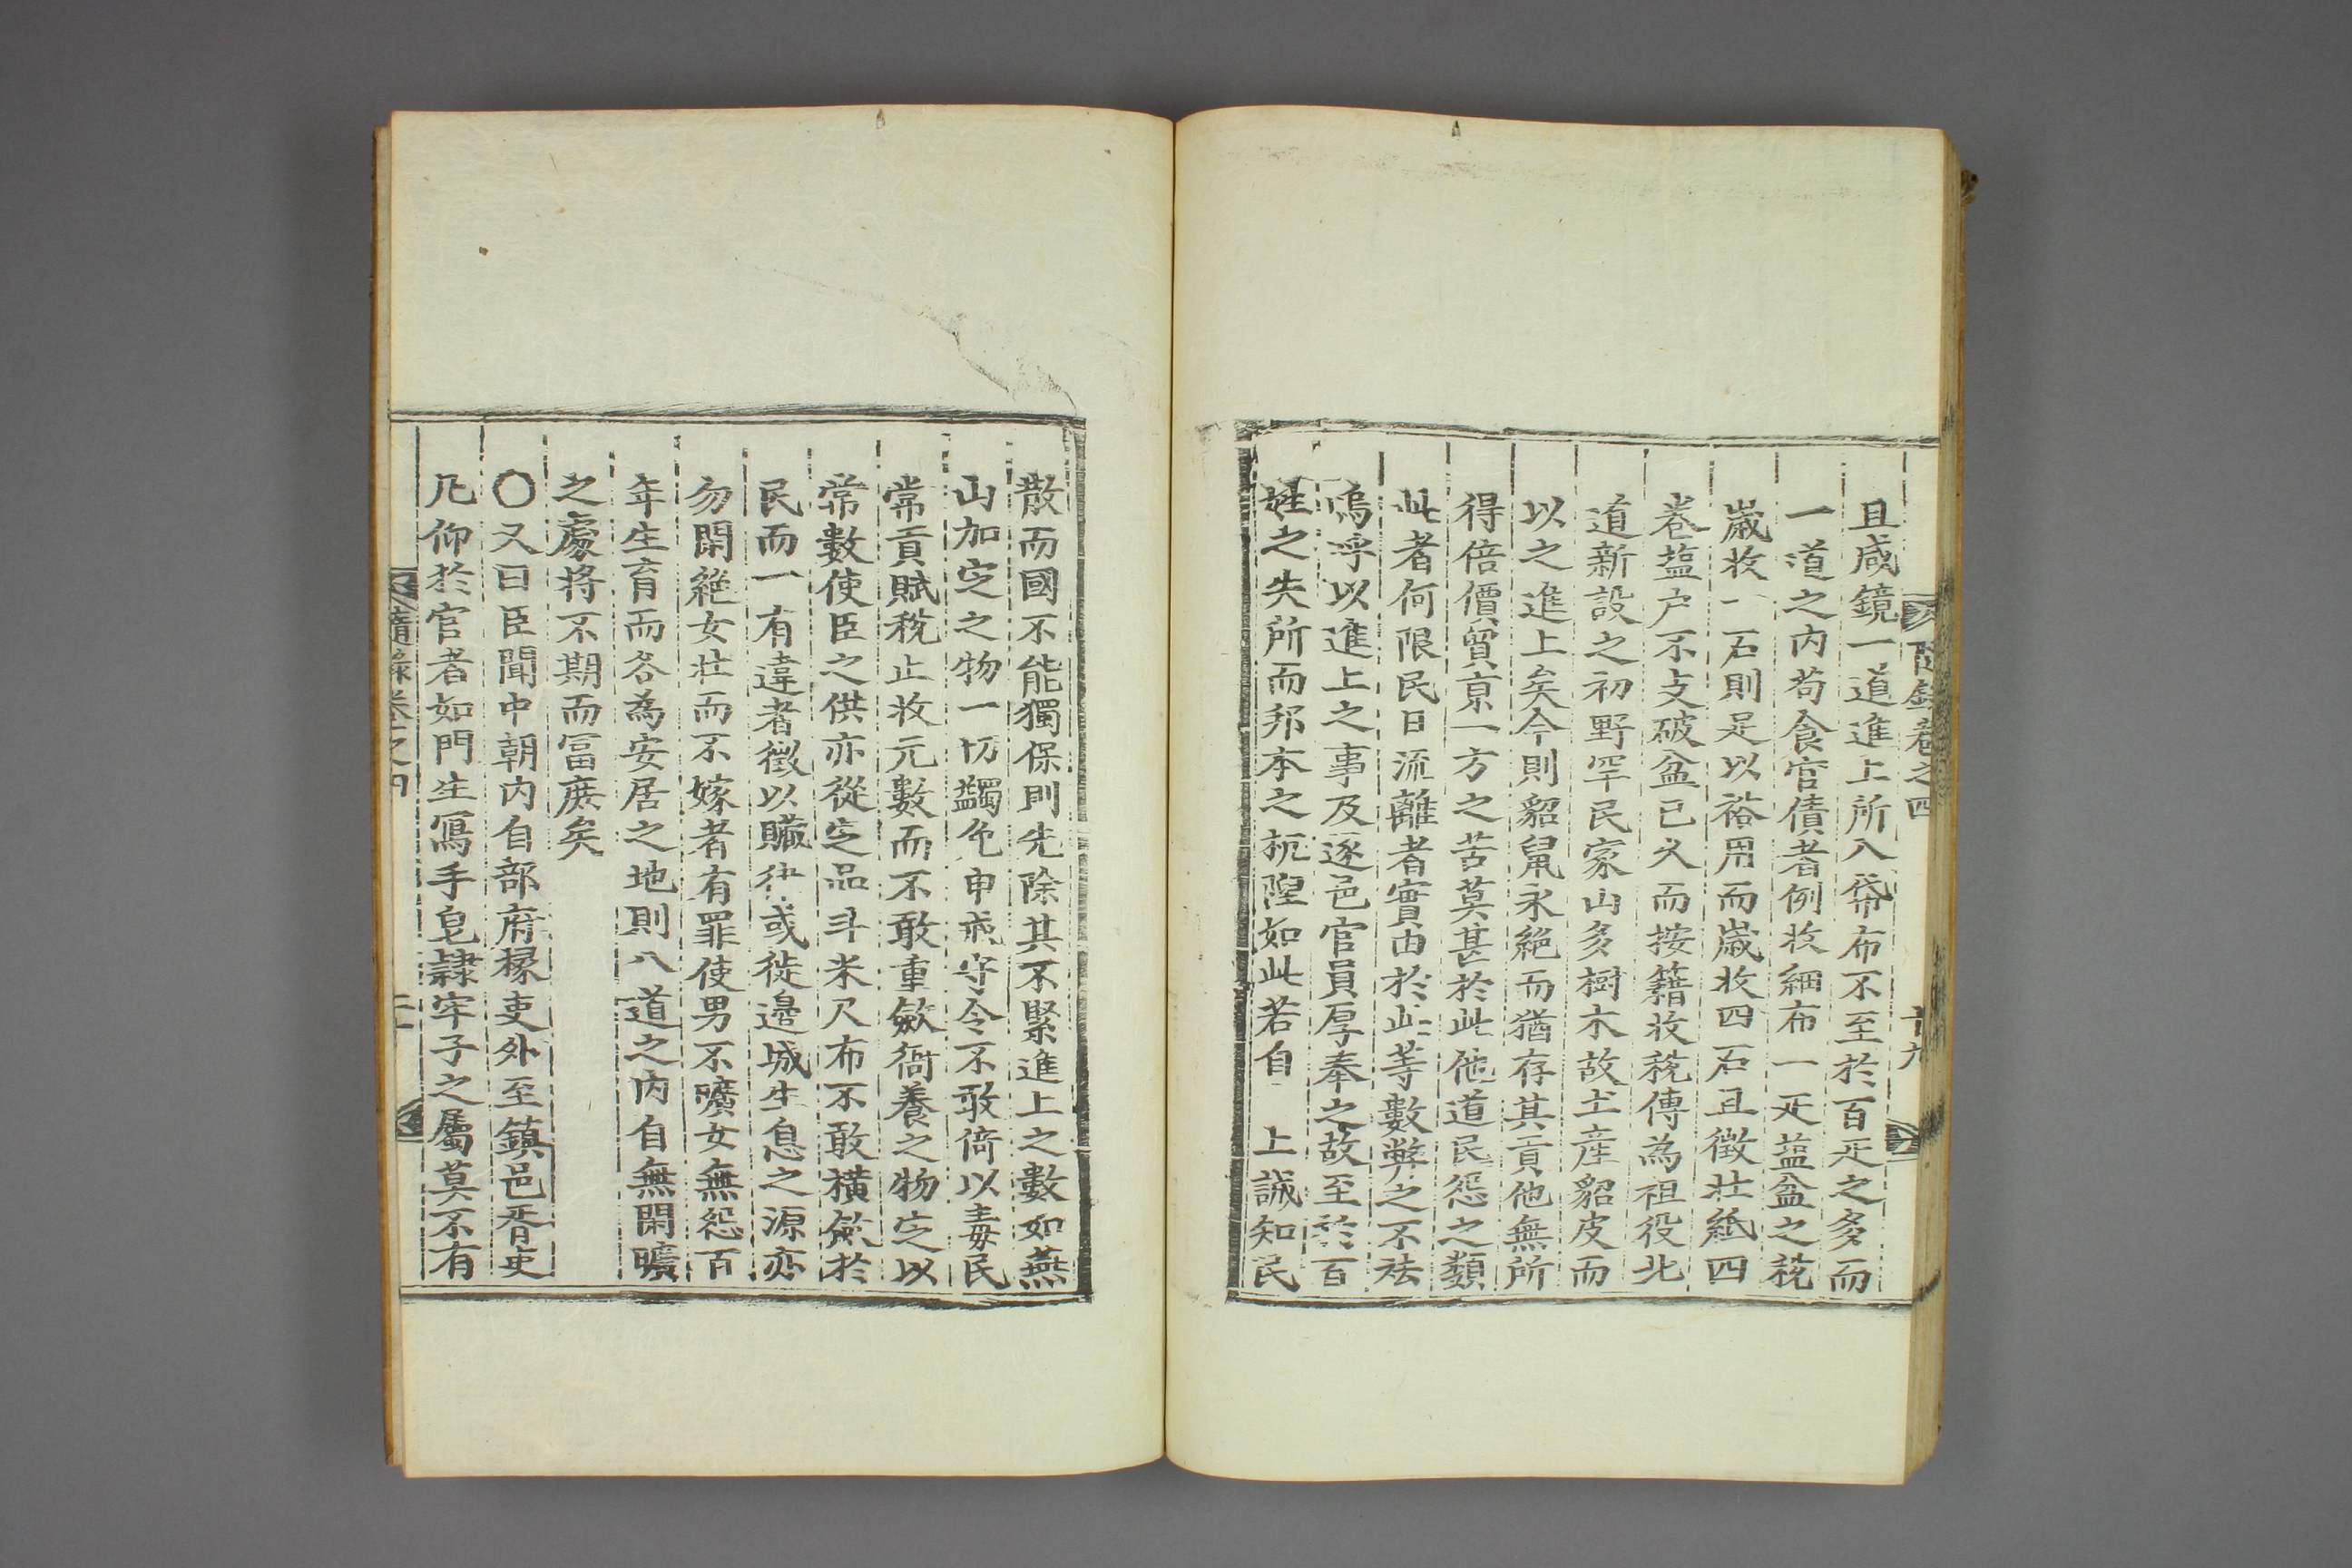 隨錄卷之四
十九
且咸鏡一道進上所入帒布不至於百疋之多而
一道之內苟食官債者例收綱布一疋䀋盆之稅
歲收一石則足以裕用而歲收四石且徵壯紙四
卷䀋户不支破盆已久而按籍收稅傳為祖役北
道新設之初野罕民家山多樹木故土産貂皮而
以之進上矣今則貂鼠永絕而猶存其貢他無所
得倍價貿京一方之苦莫甚於此他道民怨之類
此者何限民日流離者實由於此等數弊之不祛
嗚呼以進上之事及逐邑官員厚奉之故至於百
姓之失所而邦本之杌隉如此若自 上誠知民
散而國不能獨保則先除其不緊進上之數如燕
山加㝎之物一切蠲免申戒守令不敢倚以毒民
常貢賦稅止收元數而不敢重斂衙養之物㝎以
常數使臣之供亦從㝎品斗米尺布不敢橫斂於
民而一有違者徵以贓律或徙邊城生息之源亦
勿閉絕女壯而不嫁者有罪使男不曠女無怨百
年生育而各為安居之地則八道之內自無閑曠
之處將不期而冨庶矣
〇又曰臣聞中朝內自部府椽吏外至鎮邑胥吏
凡仰於官者如門生寫手皂隷牢子之屬莫不有
隨錄卷之四
二十